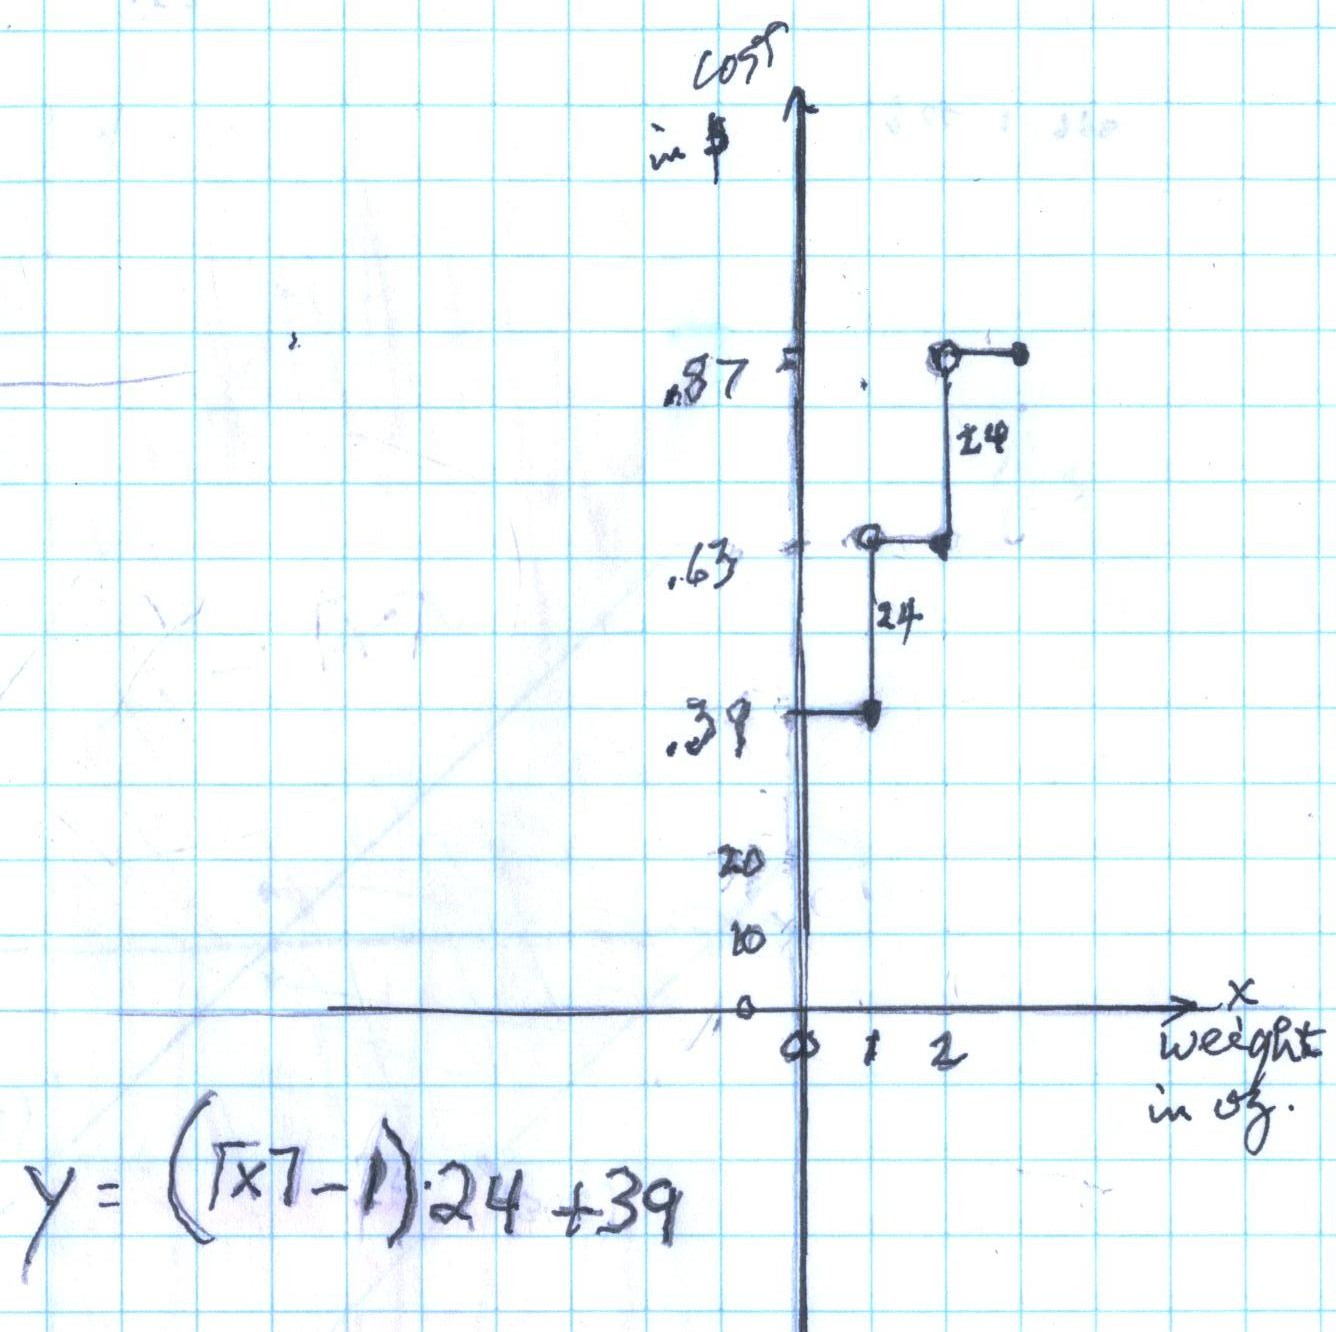 cost
in $
.87
24
.63
24
.39
20
10
0
0 1 2
x
weight
in oz.
y = (⌈x⌉ - 1)·24 + 39